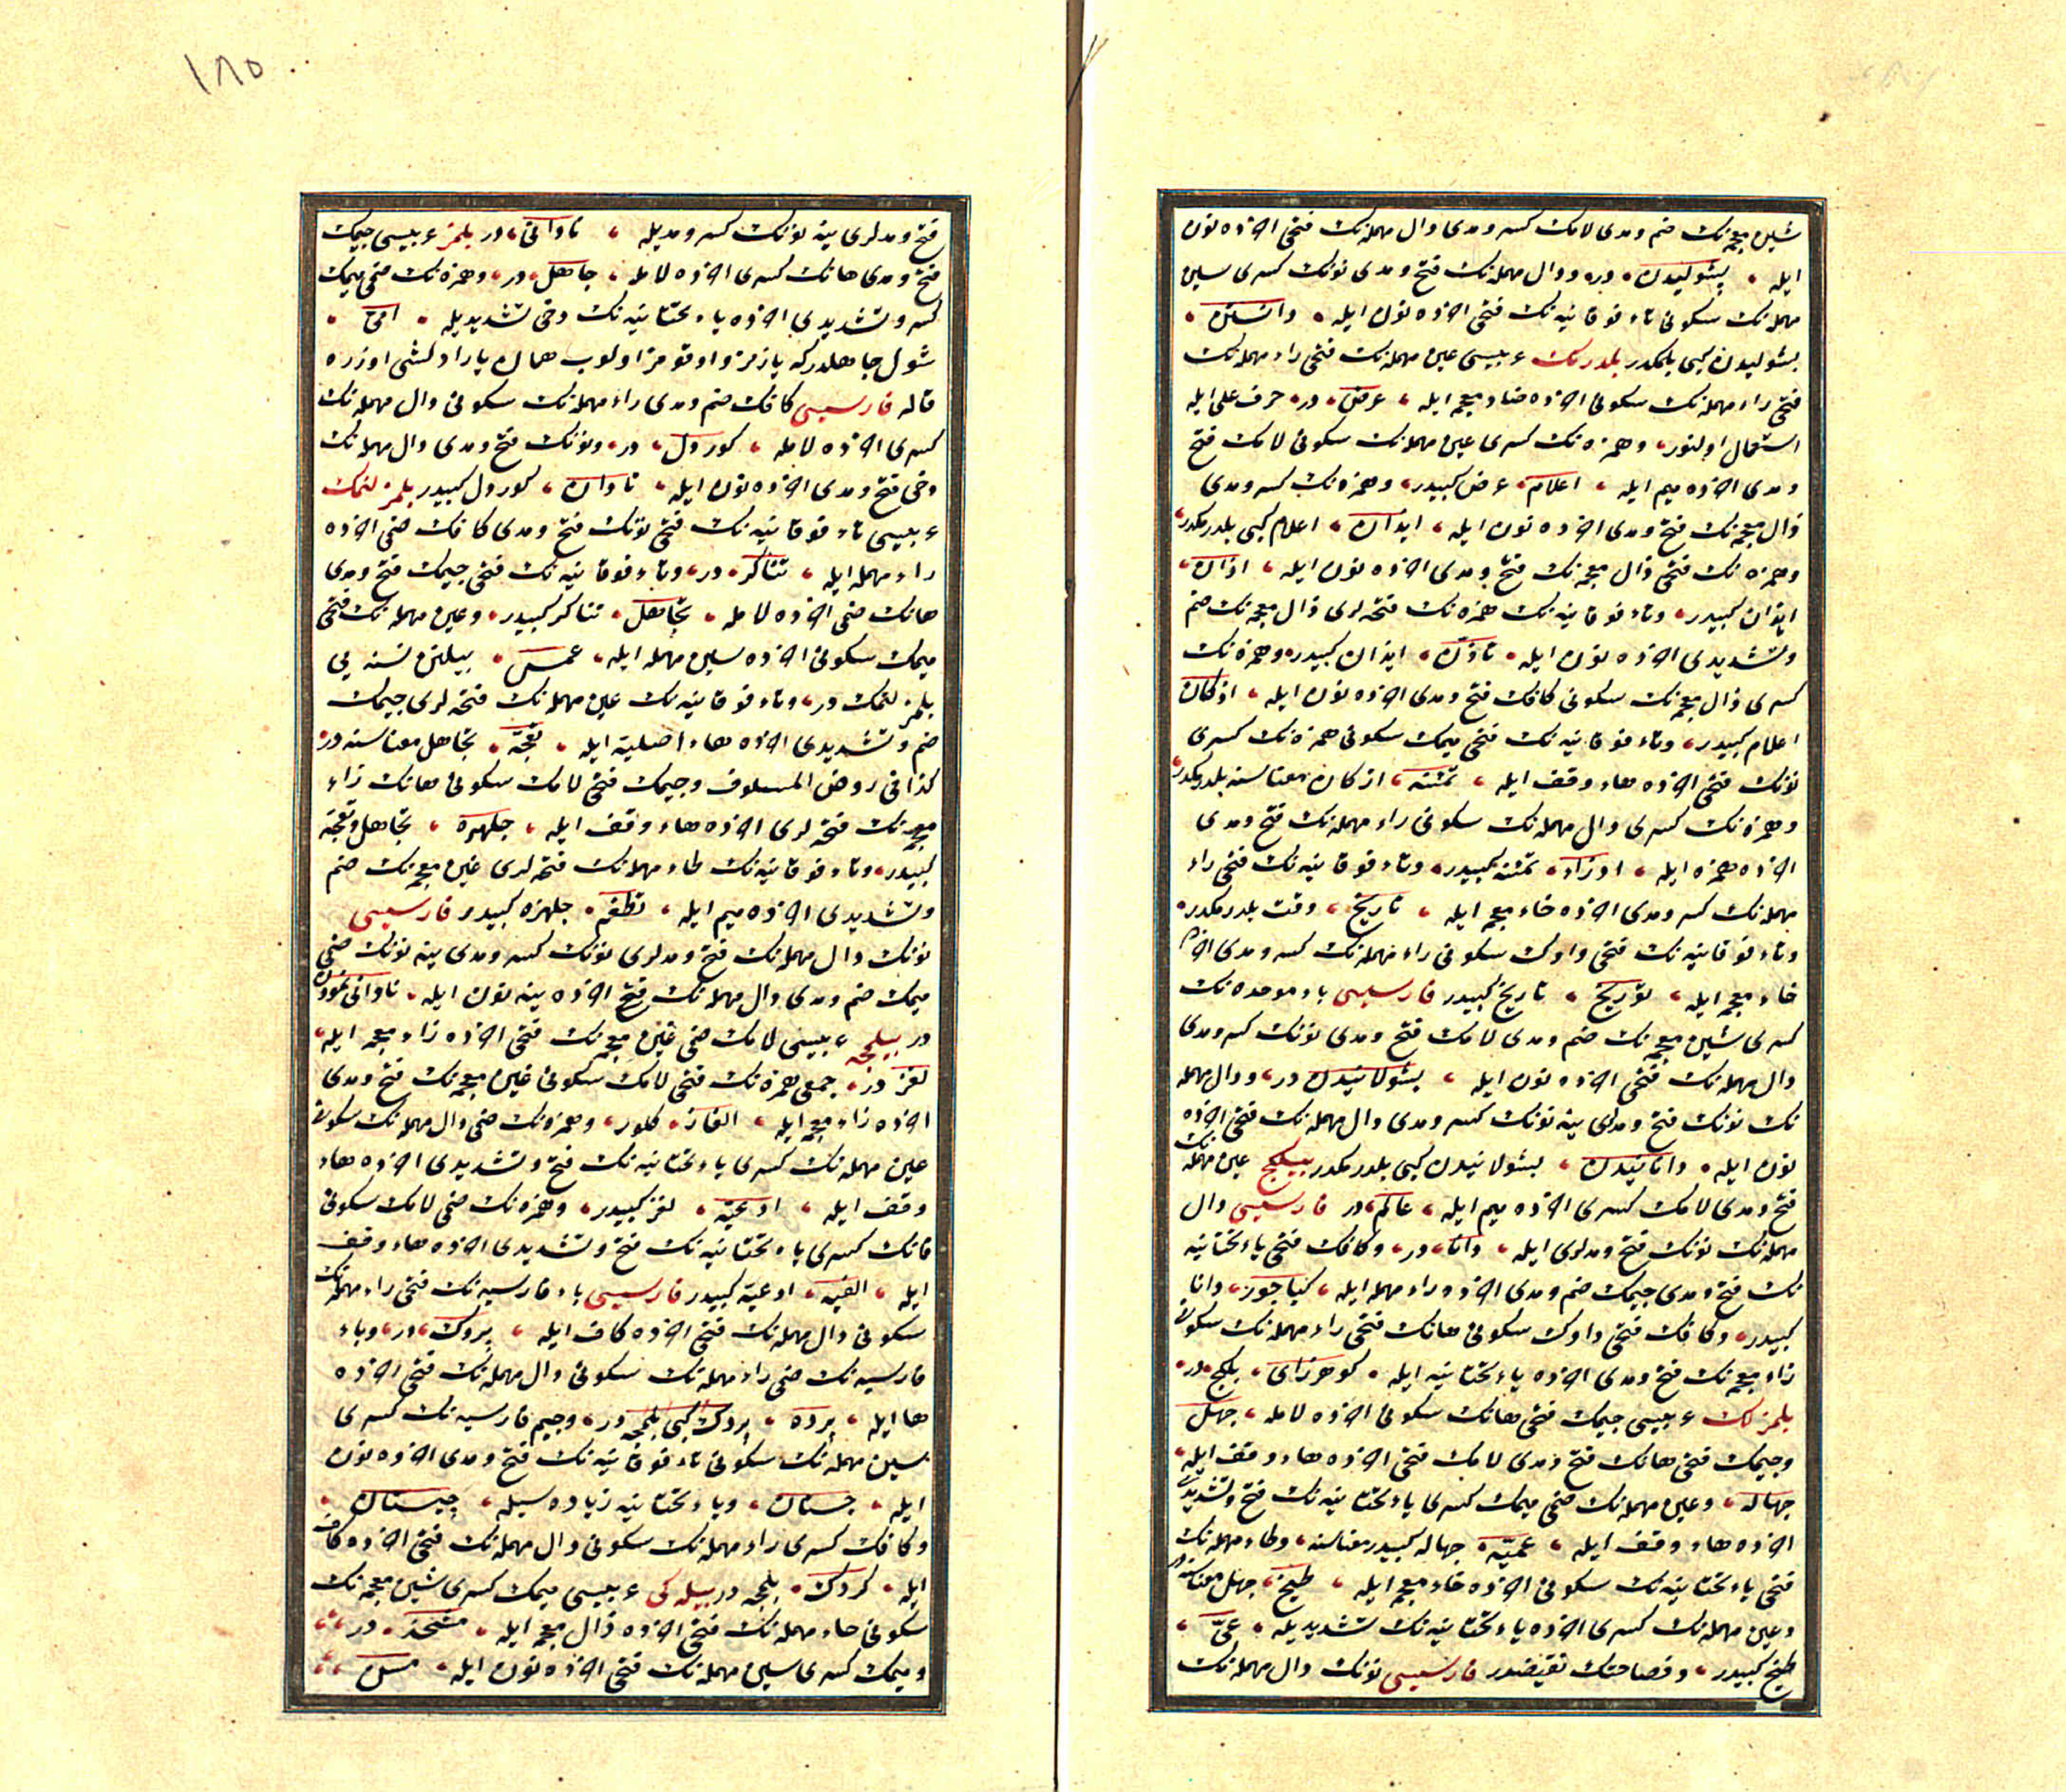 شین معجمه‌نك ضم ومدی لامك كسر ومدی دال مهمله‌نك فتحی اخرده نون
ایله ، پشولیدن ، در، ودال مهمله‌نك فتح ومدی نونك كسری سین
مهمله‌نك سكونی تاء فوقانیه‌نك فتحی اخرده نون ایله ، دانستن ،
بشولیدن كبی بلمكدر بلدرمك عربیسی عین مهمله‌نك فتحی راء مهمله‌نك
فتحی راء مهمله‌نك سكونی اخرده ضاد معجمه ایله ، عرض ، در، حرف علی ایله
استعمال اولنور، وهمزه‌نك كسری عین مهمله‌نك سكونی لامك فتح
ومدی اخرده میم ایله ، اعلام ، عرض كبیدر، وهمزه‌نك كسر ومدی
ذال معجمه‌نك فتح ومدی اخرده نون ایله ، ایذان ، اعلام كبی بلدرمكدر،
وهمزه‌نك فتحی ذال معجمه‌نك فتح ومدی اخرده نون ایله ، اذان ،
ایذان كبیدر، وتاء فوقانیه‌نك همزه‌نك فتحه‌لری ذال معجمه‌نك ضم
وتشدیدی اخرده نون ایله ، تاذّن ، ایذان كبیدر، وهمزه‌نك
كسری ذال معجمه‌نك سكونی كافك فتح ومدی اخرده نون ایله ، اذكان
اعلام كبیدر، وتاء فوقانیه‌نك فتحی میمك سكونی همزه‌نك كسری
نونك فتحی اخرده هاء وقف ایله ، تمئنه ، اذكان معناسنه بلدرمكدر،
وهمزه‌نك كسری دال مهمله‌نك سكونی راء مهمله‌نك فتح ومدی
اخرده همزه ایله ، ادراء ، تمئنه كبیدر، وتاء فوقانیه‌نك فتحی راء
مهمله‌نك كسر ومدی اخرده خاء معجمه ایله ، تاریخ ، وقت بلدرمكدر،
وتاء فوقانیه‌نك فتحی واوك سكونی راء مهمله‌نك كسر ومدی اخرده
خاء معجمه ایله ، توریخ ، تاریخ كبیدر فارسیسی باء موحده‌نك
كسری شین معجمه‌نك ضم ومدی لامك فتح ومدی نونك كسر ومدی
دال مهمله‌نك فتحی اخرده نون ایله ، بشولانیدن در، ودال مهمله
نك نونك فتح ومدلری ینه نونك كسر ومدی دال مهمله‌نك فتحی اخرده
نون ایله ، دانانیدن ، بشولانیدن كبی بلدرمكدر بیلیجی عین مهمله‌نك
فتح ومدی لامك كسری اخرده میم ایله ، عالم ، در فارسیسی دال
مهمله‌نك نونك فتح ومدلری ایله ، دانا، در، وكافك فتحی یاء تحتانیه
نك فتح ومدی جیمك ضم ومدی اخرده راء مهمله ایله ، كیاجور، دانا
كبیدر، وكافك فتحی واوك سكونی هانك فتحی راء مهمله‌نك سكونی
زاء معجمه‌نك فتح ومدی اخرده یاء تحتانیه ایله ، كوهرزای ، بلیجی در،
بلمزلك عربیسی جیمك فتحی هانك سكونی اخرده لامله ، جهل
وجیمك فتحی هانك فتح ومدی لامك فتحی اخرده هاء وقف ایله ،
جهاله ، وعین مهمله‌نك ضمی میمك كسری یاء تحتانیه‌نك فتح وتشدیدی
اخرده هاء وقف ایله ، عمیّه ، جهاله كبیدر معناسنه ، وطاء مهمله‌نك
فتحی یاء تحتانیه‌نك سكونی اخرده خاء معجمه ایله ، طیخ ، جهل معناسنه در
وعین مهمله‌نك كسری اخرده یاء تحتانیه‌نك تشدیدیله ، عیّ ،
طیخ كبیدر، وفصاحتك نقیضدر فارسیسی نونك دال مهمله‌نك
فتح ومدلری ینه نونك كسر ومدیله ، نادانی ، در بلمز عربیسی جیمك
فتح ومدی هانك كسری اخرده لامله ، جاهل ، در، وهمزه‌نك ضمی میمك
كسر وتشدیدی اخرده یاء تحتانیه‌نك دخی تشدیدیله ، امّی ،
شول جاهلدركه یازمز واوقومز اولوب همان یارادلشی اوزره
قاله فارسیسی كافك ضم ومدی راء مهمله‌نك سكونی دال مهمله‌نك
كسری اخرده لامله ، كوردل ، در، ونونك فتح ومدی دال مهمله‌نك
دخی فتح ومدی اخرده نون ایله ، نادان ، كوردل كبیدر بلمزلنمك
عربیسی تاء فوقانیه‌نك فتحی نونك فتح ومدی كافك ضمی اخرده
راء مهمله ایله ، تناكر، در، وتاء فوقانیه‌نك فتحی جیمك فتح ومدی
هانك ضمی اخرده لامله ، تجاهل ، تناكر كبیدر، وعین مهمله‌نك فتحی
میمك سكونی اخرده سین مهمله ایله ، عمس ، بیلنن نسنه یی
بلمزلنمك در، وتاء فوقانیه‌نك عین مهمله‌نك فتحه‌لری جیمك
ضم وتشدیدی اخرده هاء اصلیه ایله ، تعجّه ، تجاهل معناسنه در،
كذا فی روض المسلوف وجیمك فتحی لامك سكونی هانك زاء
معجمه‌نك فتحه‌لری اخرده هاء وقف ایله ، جلهزه ، تجاهل وتعجّه
كبیدر، وتاء فوقانیه‌نك طاء مهمله‌نك فتحه‌لری غین معجمه‌نك ضم
وتشدیدی اخرده میم ایله ، تطغّم ، جلهزه كبیدر فارسیسی
نونك دال مهمله‌نك فتح ومدلری نونك كسر ومدی ینه نونك ضمی
میمك ضم ومدی دال مهمله‌نك فتح اخرده ینه نون ایله ، نادانی نمودن
در بیلمجه عربیسی لامك ضمی غین معجمه‌نك فتحی اخرده زاء معجمه ایله ،
لغز در، جمعی همزه‌نك فتحی لامك سكونی غین معجمه‌نك فتح ومدی
اخرده زاء معجمه ایله ، الغاز ، كلور، وهمزه‌نك ضمی دال مهمله‌نك سكونی
عین مهمله‌نك كسری یاء تحتانیه‌نك فتح وتشدیدی اخرده هاء
وقف ایله ، ادعیّه ، لغز كبیدر، وهمزه‌نك ضمی لامك سكونی
فانك كسری یاء تحتانیه‌نك فتح وتشدیدی اخرده هاء وقف
ایله ، الفیه ، ادعیّه كبیدر فارسیسی باء فارسیه‌نك فتحی راء مهمله‌نك
سكونی دال مهمله‌نك فتحی اخرده كاف ایله ، پردك ، در، وباء
فارسیه‌نك ضمی راء مهمله‌نك سكونی دال مهمله‌نك فتحی اخرده
ها ایله ، پرده ، پردك كبی بلمجه در، وجیم فارسیه‌نك كسری
سین مهمله‌نك سكونی تاء فوقانیه‌نك فتح ومدی اخرده نون
ایله ، چستان ، ویاء تحتانیه زیاده سیله ، چیستان ،
وكافك كسری راء مهمله‌نك سكونی دال مهمله‌نك فتحی اخرده كاف
ایله ، كردك ، بلمجه در بیله كی عربیسی میمك كسری شین معجمه‌نك
سكونی حاء مهمله‌نك فتحی اخرده ذال معجمه ایله ، مشحذ ، در،
ومیمك كسری سین مهمله‌نك فتحی اخرده نون ایله ، مسنّ ،
١٨٥